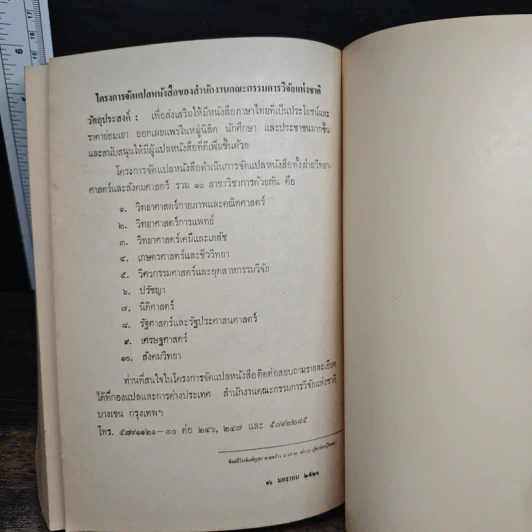 โครงการจัดแปลหนังสือของสำนักงานคณะกรรมการวิจัยแห่งชาติ
วัตถุประสงค์ : เพื่อส่งเสริมให้มีหนังสือภาษาไทยที่เป็นประโยชน์และ
ราคาย่อมเยา ออกเผยแพร่ในหมู่นิสิต นักศึกษา และประชาชนมากขึ้น
และสนับสนุนให้มีผู้แปลหนังสือที่ดีเพิ่มขึ้นด้วย
โครงการจัดแปลหนังสือดำเนินการจัดแปลหนังสือทั้งฝ่ายวิทยา-
ศาสตร์และสังคมศาสตร์ รวม ๑๐ สาขาวิชาการด้วยกัน คือ
๑. วิทยาศาสตร์กายภาพและคณิตศาสตร์
๒. วิทยาศาสตร์การแพทย์
๓. วิทยาศาสตร์เคมีและเภสัช
๔. เกษตรศาสตร์และชีววิทยา
๕. วิศวกรรมศาสตร์และอุตสาหกรรมวิจัย
๖. ปรัชญา
๗. นิติศาสตร์
๘. รัฐศาสตร์และรัฐประศาสนศาสตร์
๙. เศรษฐศาสตร์
๑๐. สังคมวิทยา
ท่านที่สนใจในโครงการจัดแปลหนังสือติดต่อสอบถามรายละเอียด
ได้ที่กองแปลและการต่างประเทศ สำนักงานคณะกรรมการวิจัยแห่งชาติ
บางเขน กรุงเทพฯ
โทร. ๕๗๙๑๑๒๑-๓๐ ต่อ ๒๔๖, ๒๔๗ และ
มกราคม ๒๕๒๑
6
7